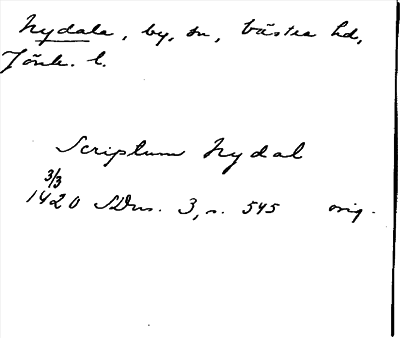 Nydala, by, sn, Västra hd,
Jönk. l.
Scriptum Nydal
3/3
1420 SDns. 3, s. 545 orig.